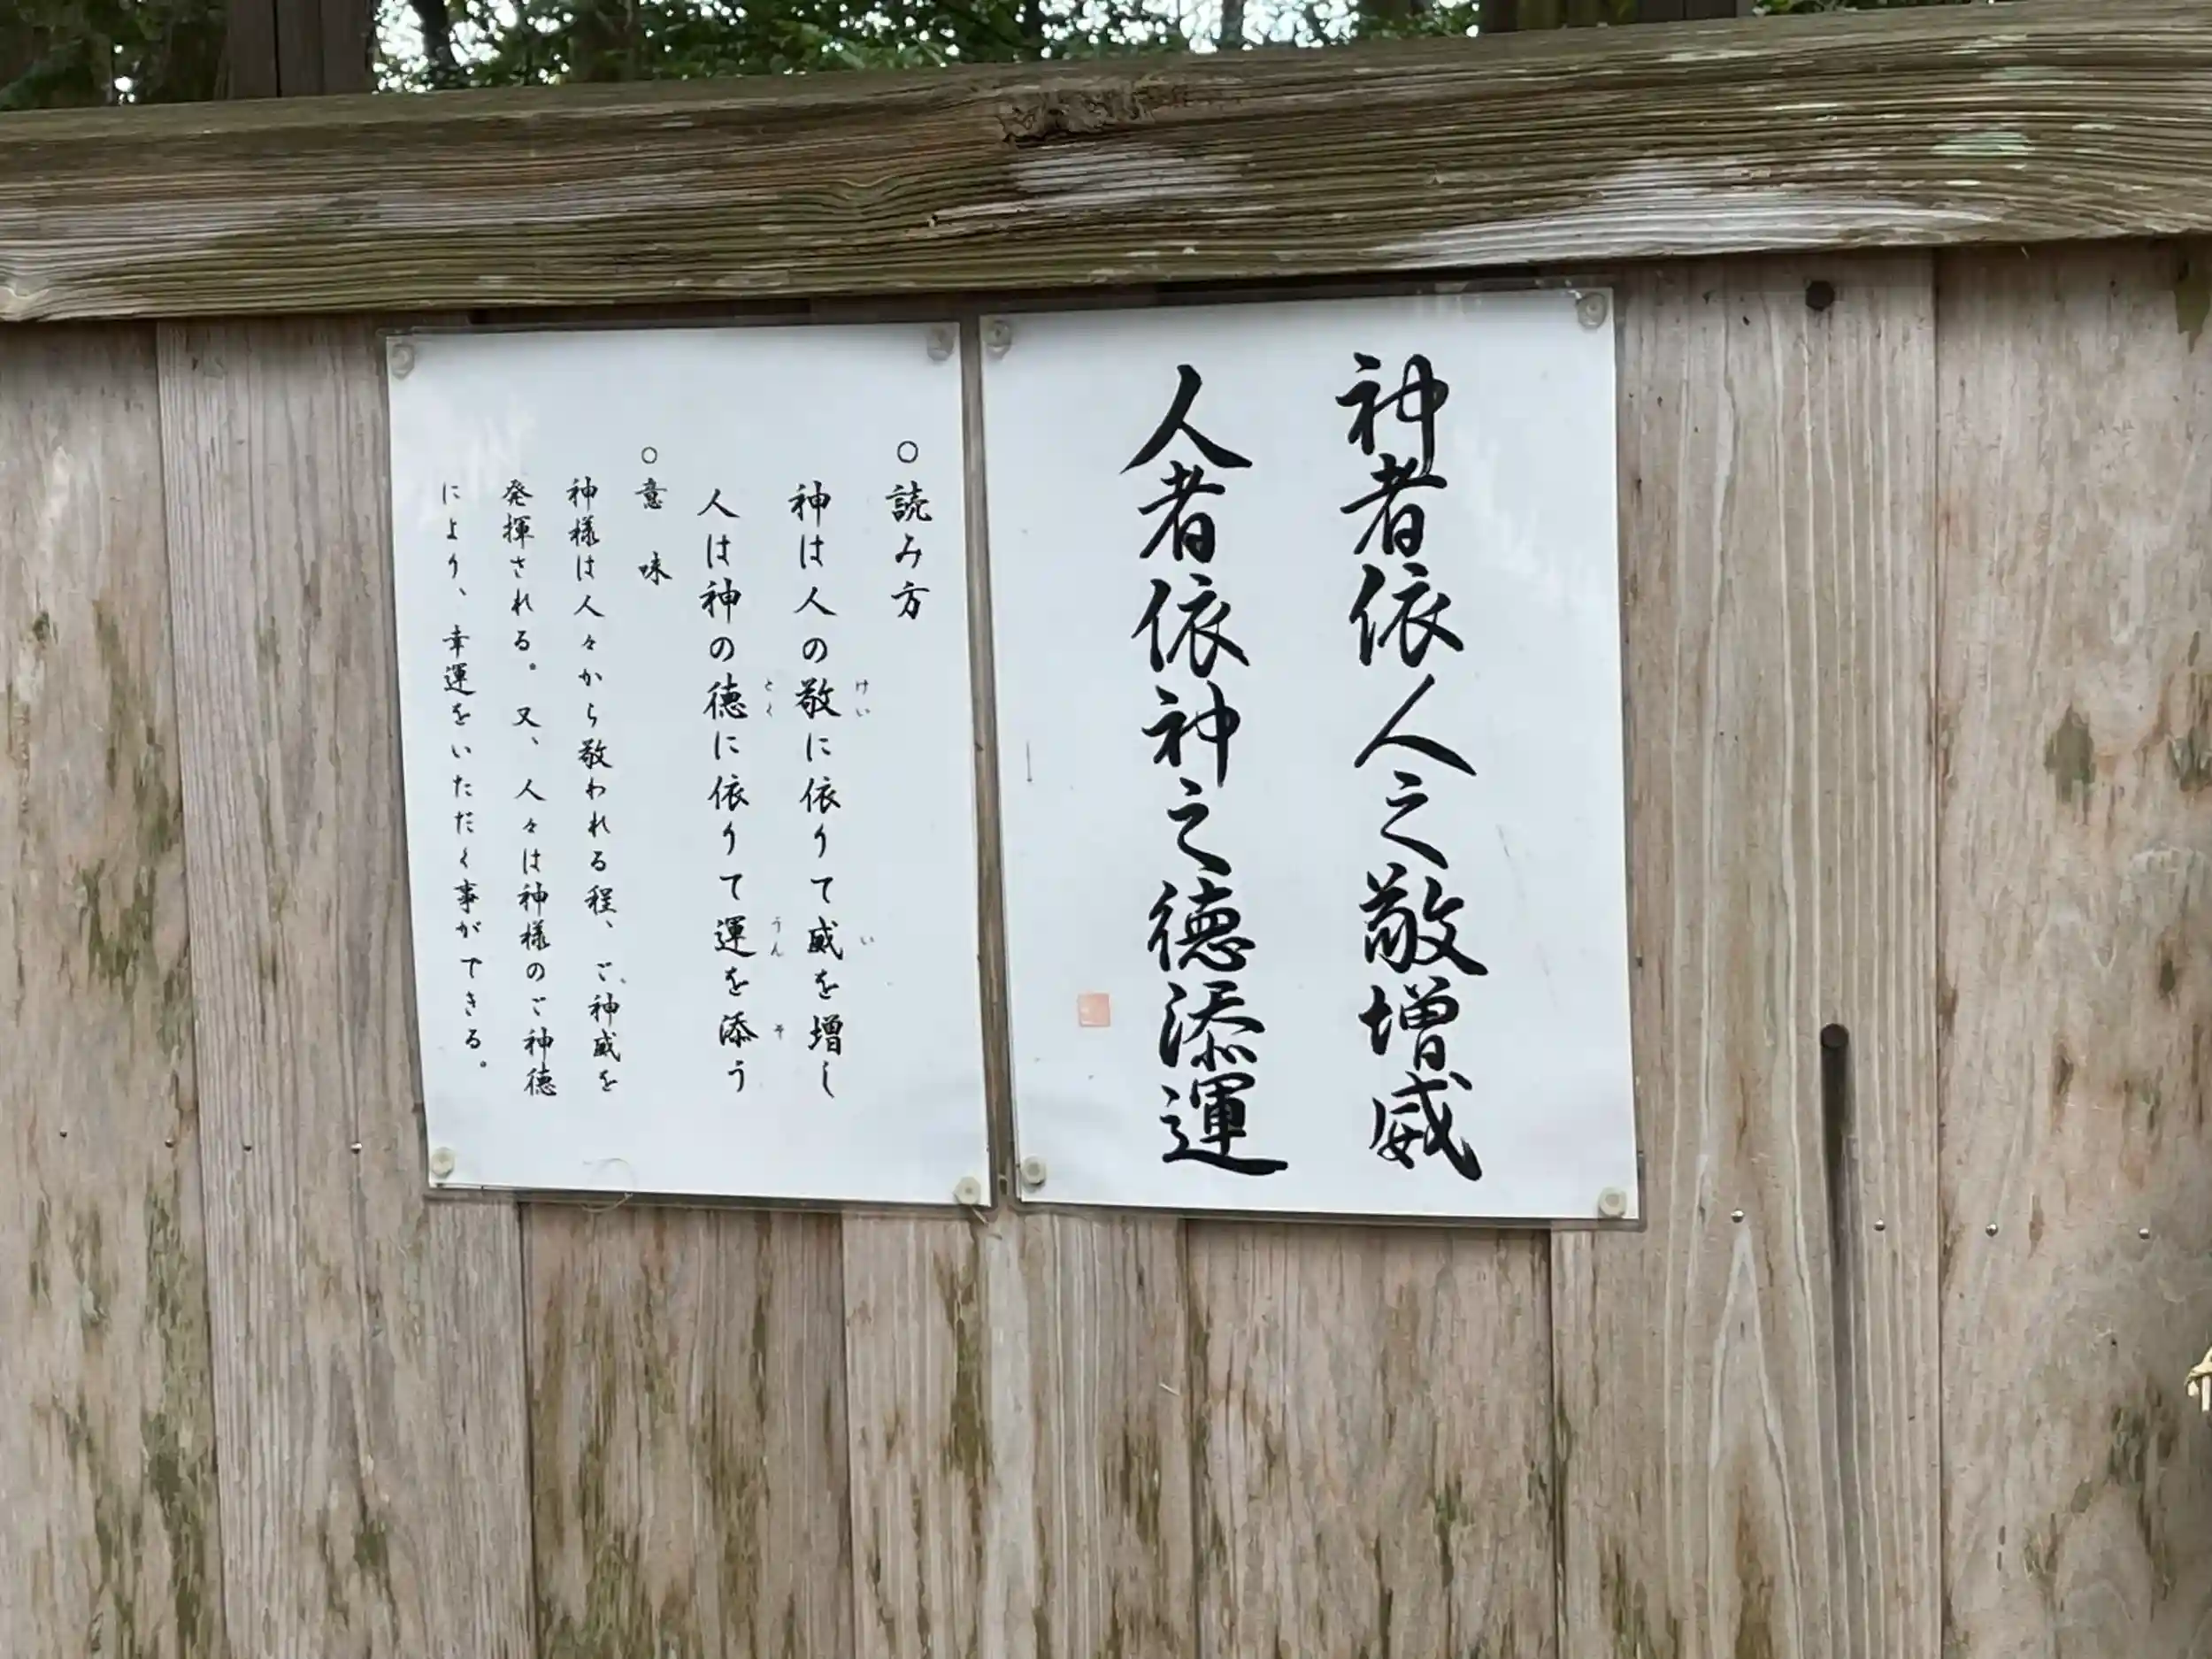 神者依人之敬増威
人者依神之徳添運
○読み方
神は人の敬に依りて威を増し
けい
い
人は神の徳に依りて運を添う
とく
うん
そ
○意 味
神様は人々から敬われる程、ご神威を
発揮される。又、人々は神様のご神徳
により、幸運をいただく事ができる。